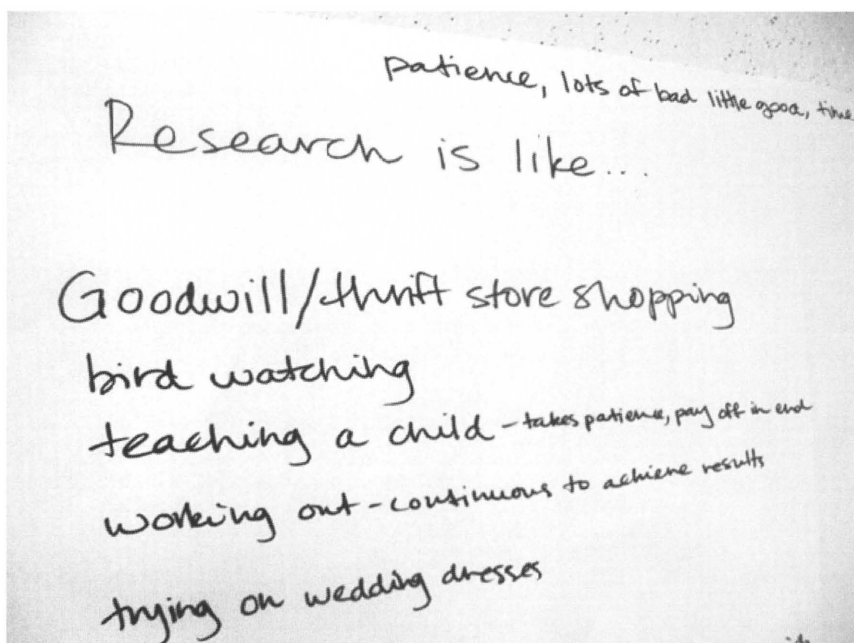 patience, lots of bad little good, time
Research is like...
Goodwill/thrift store shopping
bird watching
teaching a child - takes patience, pay off in end
working out - continuous to achieve results
trying on wedding dresses